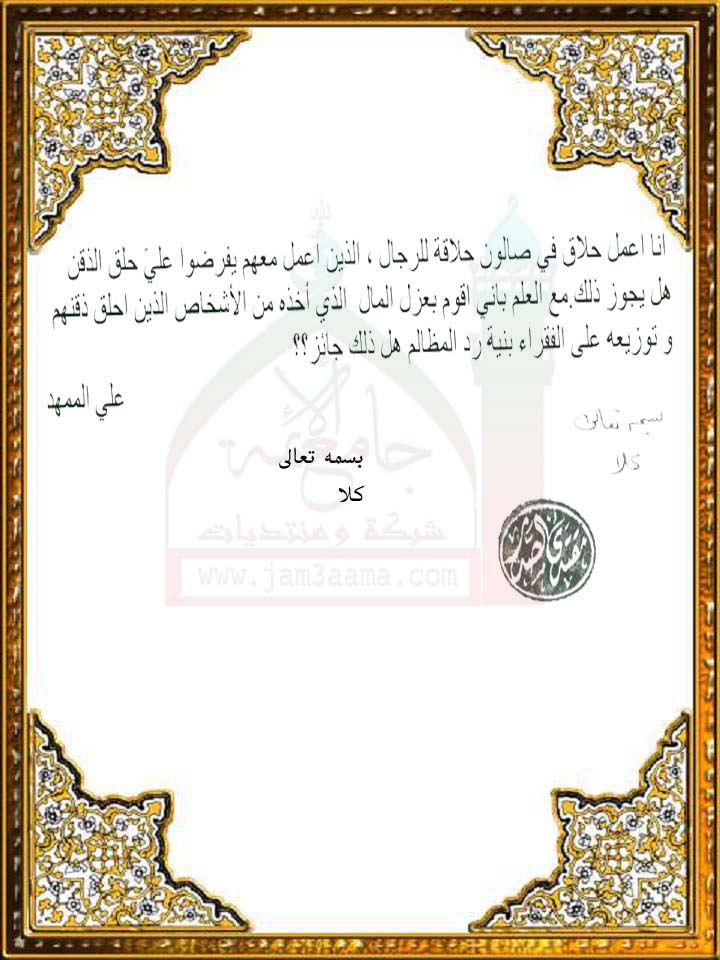 انا اعمل حلاق في صالون حلاقة للرجال ، الذين اعمل معهم يفرضوا عليَ حلق الذقن
هل يجوز ذلك.مع العلم باني اقوم بعزل المال الذي أخذه من الأشخاص الذين احلق ذقنهم
و توزيعه على الفقراء بنية رد المظالم هل ذلك جائز؟؟
علي الممهد
بسمه تعالى
كلا
بسمه تعالى
كلا
مقتدى الصدر
جامعة الأئمة
شبكة ومنتديات
www.jam3aama.com